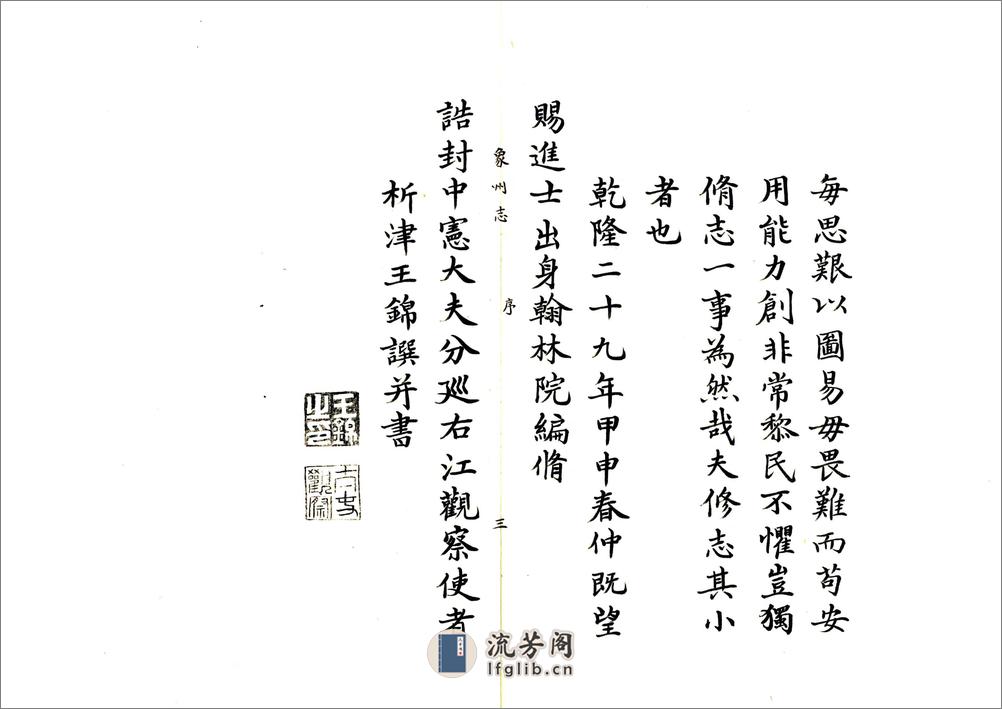 每思艱以圖易毋畏難而苟安
用能力創非常黎民不懼豈獨
脩志一事為然哉夫修志其小
者也
乾隆二十九年甲申春仲既望
賜進士出身翰林院編脩
象州志
序
三
誥封中憲大夫分巡右江觀察使者
析津王錦譔并書
王錦之印
流芳阁
lfglib.cn